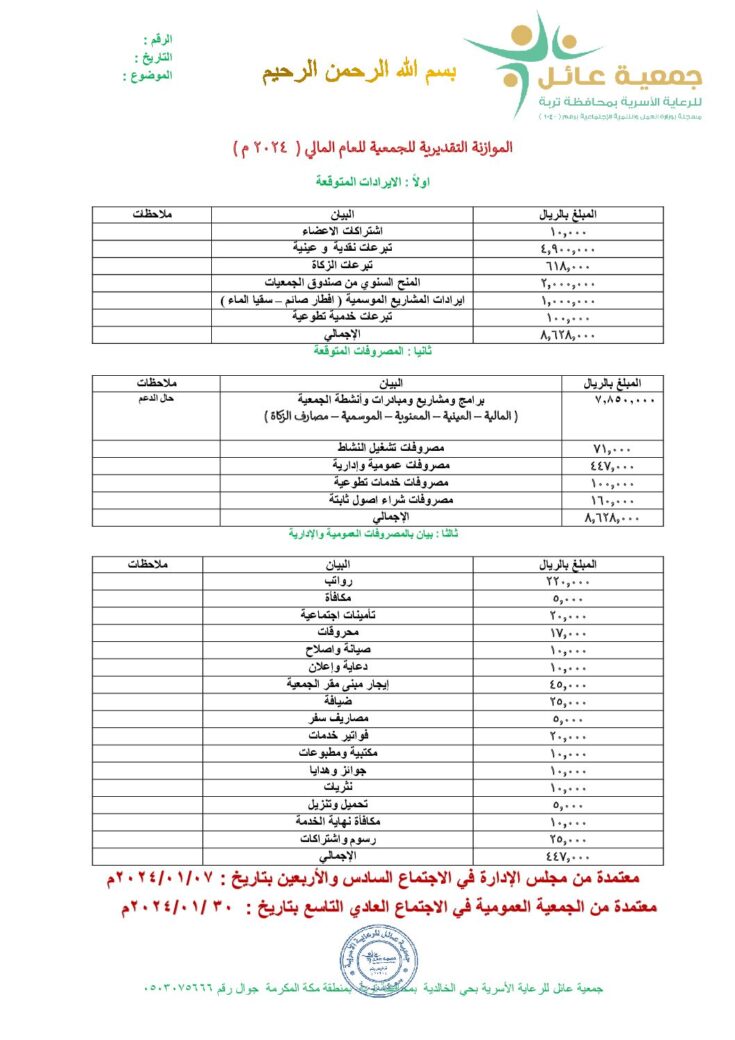 جمعية عائل
للرعاية الأسرية بمحافظة تربة
مسجلة بوزارة العمل والتنمية الإجتماعية برقم (٢٠٤٠)
بسم الله الرحمن الرحيم
الرقم :
التاريخ :
الموضوع :
الموازنة التقديرية للجمعية للعام المالي ( ٢٠٢٤ م )
اولاً : الايرادات المتوقعة
المبلغ بالريال البيان ملاحظات
١٠,٠٠٠ اشتراكات الاعضاء
٤,٩٠٠,٠٠٠ تبرعات نقدية و عينية
٦١٨,٠٠٠ تبرعات الزكاة
٢,٠٠٠,٠٠٠ المنح السنوي من صندوق الجمعيات
١,٠٠٠,٠٠٠ ايرادات المشاريع الموسمية ( افطار صائم – سقيا الماء )
١٠٠,٠٠٠ تبرعات خدمية تطوعية
٨,٦٢٨,٠٠٠ الإجمالي
ثانيا : المصروفات المتوقعة
المبلغ بالريال البيان ملاحظات
٧,٨٥٠,٠٠٠ برامج ومشاريع ومبادرات وأنشطة الجمعية حال الدعم
( المالية – العينية – المعنوية – الموسمية – مصارف الزكاة )
٧١,٠٠٠ مصروفات تشغيل النشاط
٤٤٧,٠٠٠ مصروفات عمومية وإدارية
١٠٠,٠٠٠ مصروفات خدمات تطوعية
١٦٠,٠٠٠ مصروفات شراء اصول ثابتة
٨,٦٢٨,٠٠٠ الإجمالي
ثالثا : بيان بالمصروفات العمومية والإدارية
المبلغ بالريال البيان ملاحظات
٢٢٠,٠٠٠ رواتب
٥,٠٠٠ مكافأة
٢٠,٠٠٠ تأمينات اجتماعية
١٧,٠٠٠ محروقات
١٠,٠٠٠ صيانة واصلاح
١٠,٠٠٠ دعاية وإعلان
٤٥,٠٠٠ إيجار مبنى مقر الجمعية
٢٥,٠٠٠ ضيافة
٥,٠٠٠ مصاريف سفر
٢٠,٠٠٠ فواتير خدمات
١٠,٠٠٠ مكتبية ومطبوعات
١٠,٠٠٠ جوائز وهدايا
١٠,٠٠٠ نثريات
٥,٠٠٠ تحميل وتنزيل
١٠,٠٠٠ مكافأة نهاية الخدمة
٢٥,٠٠٠ رسوم واشتراكات
٤٤٧,٠٠٠ الإجمالي
معتمدة من مجلس الإدارة في الاجتماع السادس والأربعين بتاريخ : ٢٠٢٤/٠١/٠٧م
معتمدة من الجمعية العمومية في الاجتماع العادي التاسع بتاريخ : ٣٠ /٢٠٢٤/٠١م
جمعية عائل للرعاية الأسرية
جمعية عائل للرعاية الأسرية بحي الخالدية بمنطقة مكة المكرمة جوال رقم ٠٥٠٣٠٧٥٦٦٦